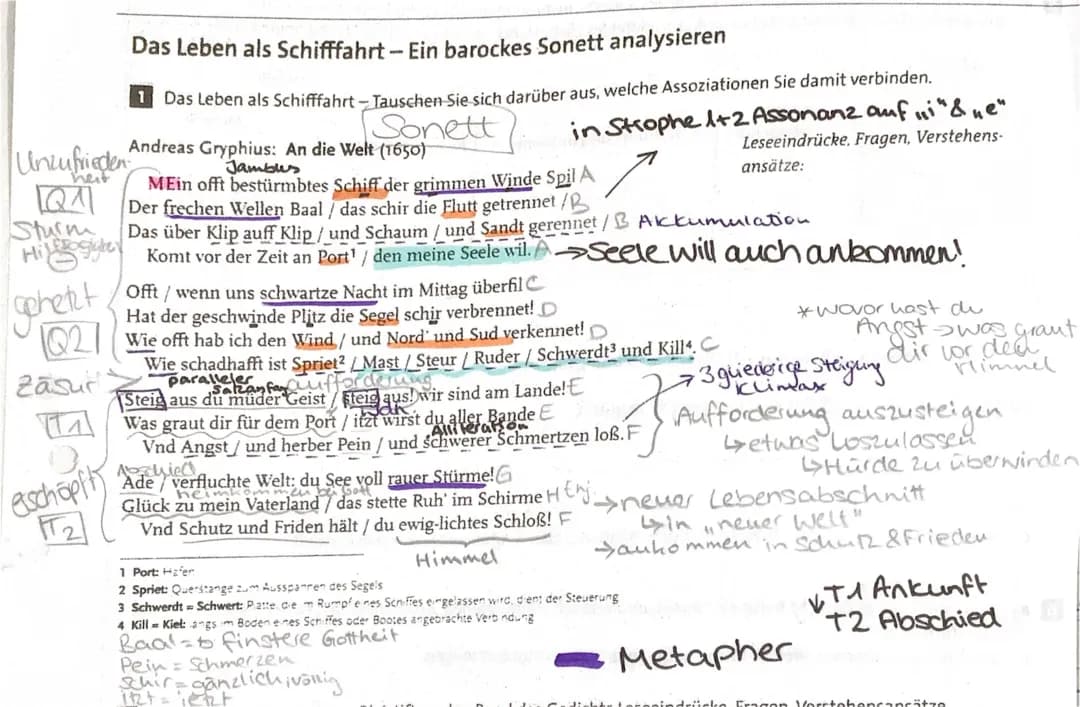 Das Leben als Schifffahrt – Ein barockes Sonett analysieren
1 Das Leben als Schifffahrt – Tauschen Sie sich darüber aus, welche Assoziationen Sie damit verbinden.
Sonett
in Strophe 1+2 Assonanz auf "i" & "e"
Andreas Gryphius: An die Welt (1650)
Leseeindrücke, Fragen, Verstehens-
ansätze:
Unzufrieden-
heit
Jambus
Q1
MEin offt bestürmbtes Schiff der grimmen Winde Spil A
Der frechen Wellen Baal / das schir die Flutt getrennet / B
Sturm
Das über Klip auff Klip / und Schaum / und Sandt gerennet / B Akkumulation
Komt vor der Zeit an Port¹ / den meine Seele wil. A → Seele will auch ankommen!
gehetzt
Q2
Offt / wenn uns schwartze Nacht im Mittag überfil C
Hat der geschwinde Plitz die Segel schir verbrennet! D
Wie offt hab ich den Wind / und Nord' und Sud verkennet! D
Wie schadhafft ist Spriet² / Mast / Steur / Ruder / Schwerdt³ und Kill⁴. C
*wovor hast du
Angst → was graut
dir vor dem
Himmel
Zäsur
paralleler
Satzanfang
Aufforderung
→ 3gliedrige Steigung
Klimax
T1
Steig aus du müder Geist / steig aus! wir sind am Lande! E
Was graut dir für dem Port / itzt wirst du aller Bande E
Alliteration
Vnd Angst / und herber Pein / und schwerer Schmertzen loß. F
Aufforderung auszusteigen
↳ etwas loszulassen
↳ Hürde zu überwinden
eschöpft
T2
Abschied
Ade / verfluchte Welt: du See voll rauer Stürme! G
heimkommen bei Gott
Glück zu mein Vaterland / das stette Ruh' im Schirme H Enj.
Vnd Schutz und Friden hält / du ewig-lichtes Schloß! F
Himmel
→ neuer Lebensabschnitt
↳ in "neuer Welt"
→ ankommen in Schutz & Frieden
1 Port: Hafen
2 Spriet: Querstange zum Ausspannen des Segels
3 Schwerdt = Schwert: Platte, die im Rumpf eines Schiffes eingelassen wird, dient der Steuerung
4 Kill = Kiel: längs im Boden eines Schiffes oder Bootes angebrachte Verbindung
Baal = finstere Gottheit
Pein = Schmerzen
schir = gänzlich, völlig
itzt = jetzt
↓ T1 Ankunft
T2 Abschied
Metapher